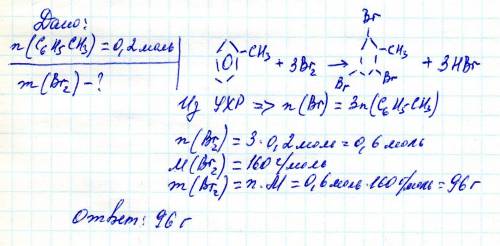 Дано:
n(C₆H₅CH₃)=0,2моль
m(Br₂)-?
-CH₃ + 3Br₂ → Br -CH₃ Br Br + 3HBr
Из УХР => n(Br)=3n(C₆H₅CH₃)
n(Br₂)=3·0,2моль=0,6моль
M(Br₂)=160г/моль
m(Br₂)=n·M=0,6моль·160г/моль=96г
Ответ: 96г